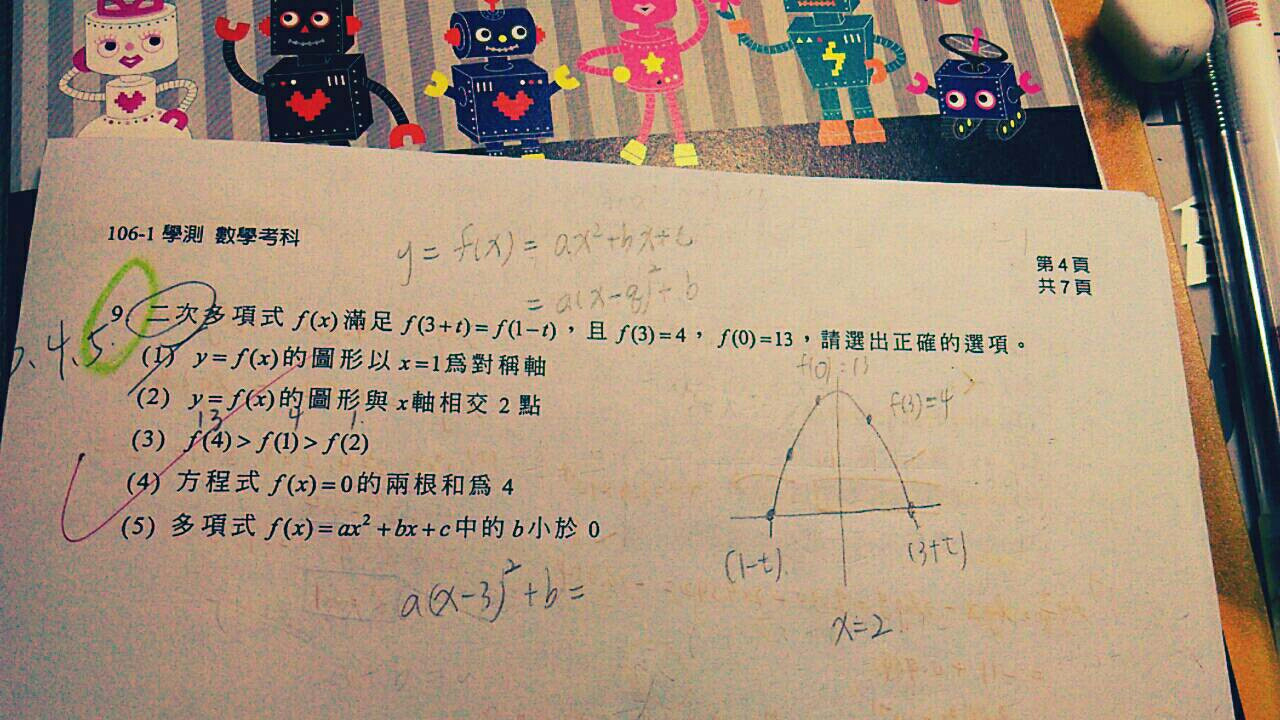 106-1 學測 數學考科
第4頁
共7頁
y = f(x) = ax²+bx+c
= a(x-q)²+b
9. 二次多項式 f(x) 滿足 f(3+t)=f(1-t)，且 f(3)=4，f(0)=13，請選出正確的選項。
4.5.
(1) y=f(x)的圖形以 x=1爲對稱軸
(2) y=f(x)的圖形與 x軸相交 2 點
13 4 1
(3) f(4)>f(1)>f(2)
(4) 方程式 f(x)=0的兩根和爲 4
(5) 多項式 f(x)=ax²+bx+c中的 b小於 0
f(0)=13
f(3)=4
(1-t)
(3+t)
x=2
a(x-3)²+b=